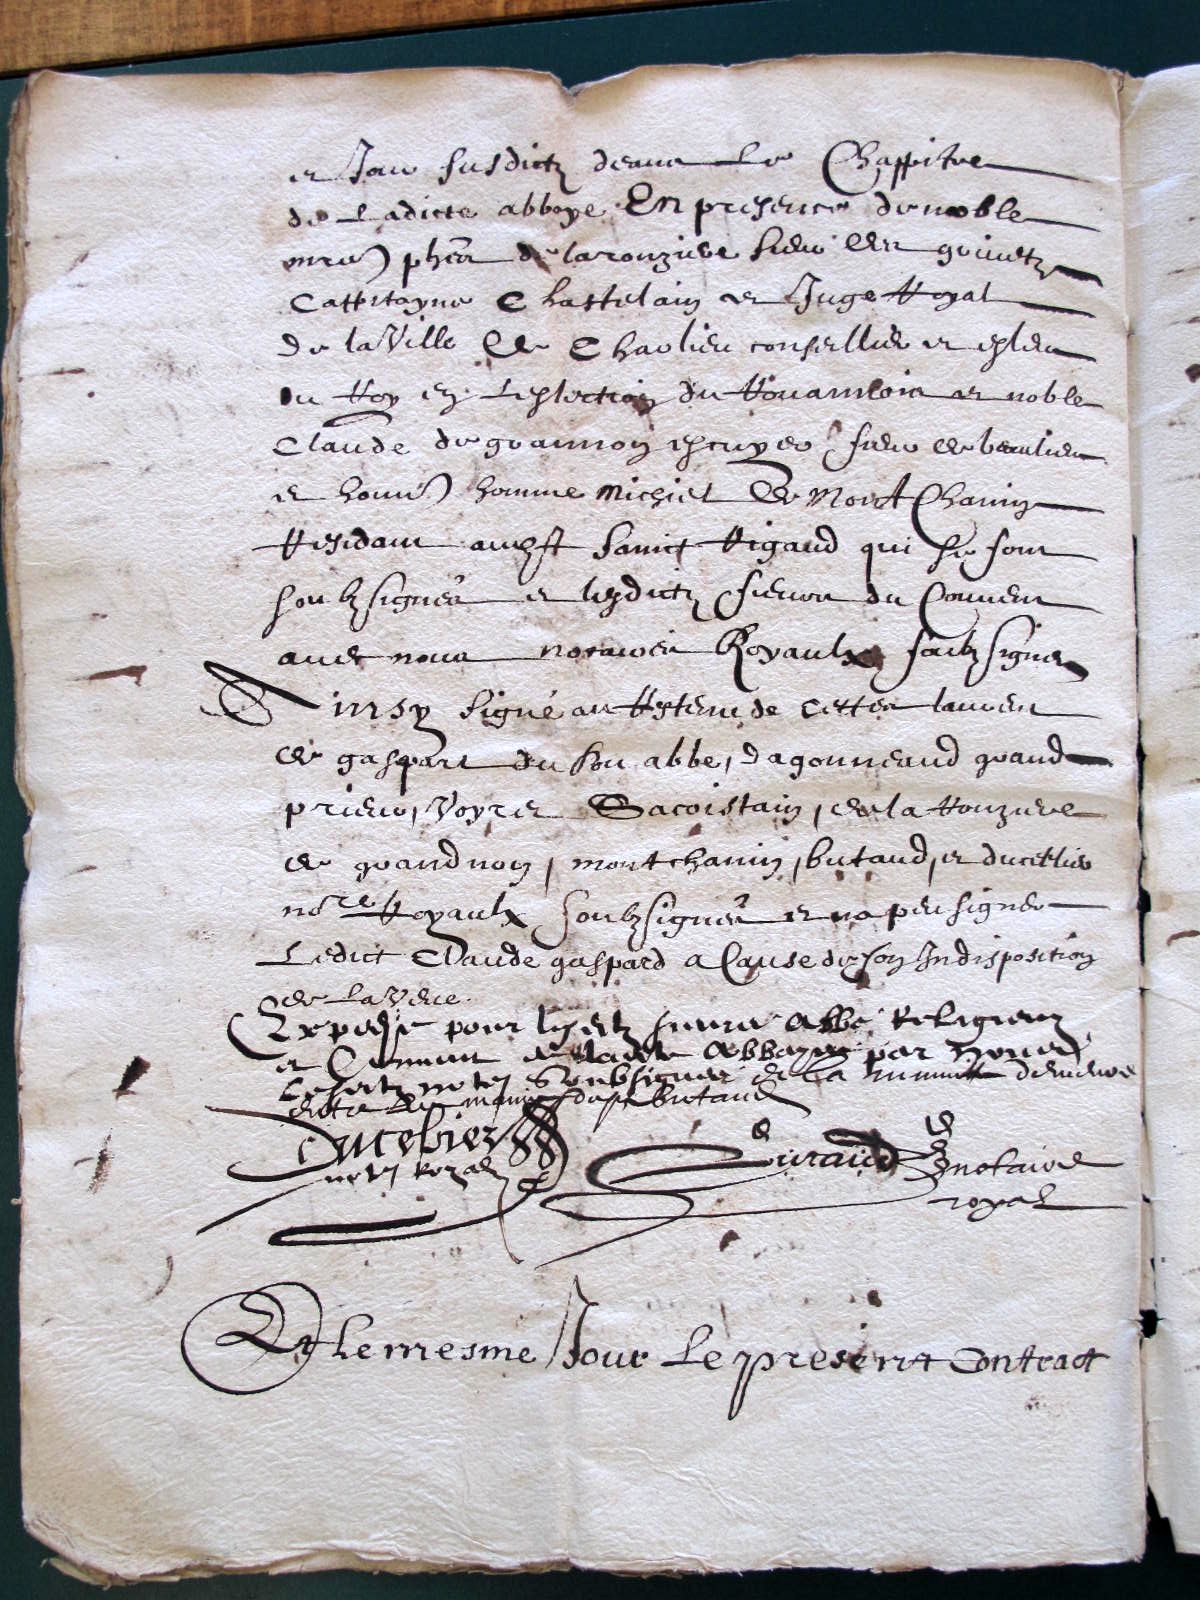 et Jour susdictz devant Le Chappitre
de Ladicte abbaye En presence de noble
de laronziere sieur des
Cappitayne Chastelain et Juge Royal
de la Ville de Charlieu conseillier et esleu
du Roy en Leslection du Rouannois et noble
Claude de grannon escuyer sieur de beaulieu
et honn homme Michiel de Mont Chanin
Residant audict Sainct Rigaud qui se sont
soubzsignés et lesdictz sieurs du Couvent
avec nous notaires Royaulx soubzsignes
Ainsy signé en de cettes
de gaspart du abbe, dagonneaud grand
prieur, Voyret Sacristain, de la Ronziere
de grandnon, montchanin, butaud, et ducellier
nores Royaulx soubzsignés et na peu signer
Ledict Claude gaspard a Cause de son Indisposition
de La Veue
Expedié pour lesditz sieurs Abbé Religieux
et Couvent de ladite Abbaye par nous
notres Soubsignez la minutte demeuré
butaud
Ducelier
notre Royal
Butaud notaire
royal
Et Le mesme Jour Le present Contract